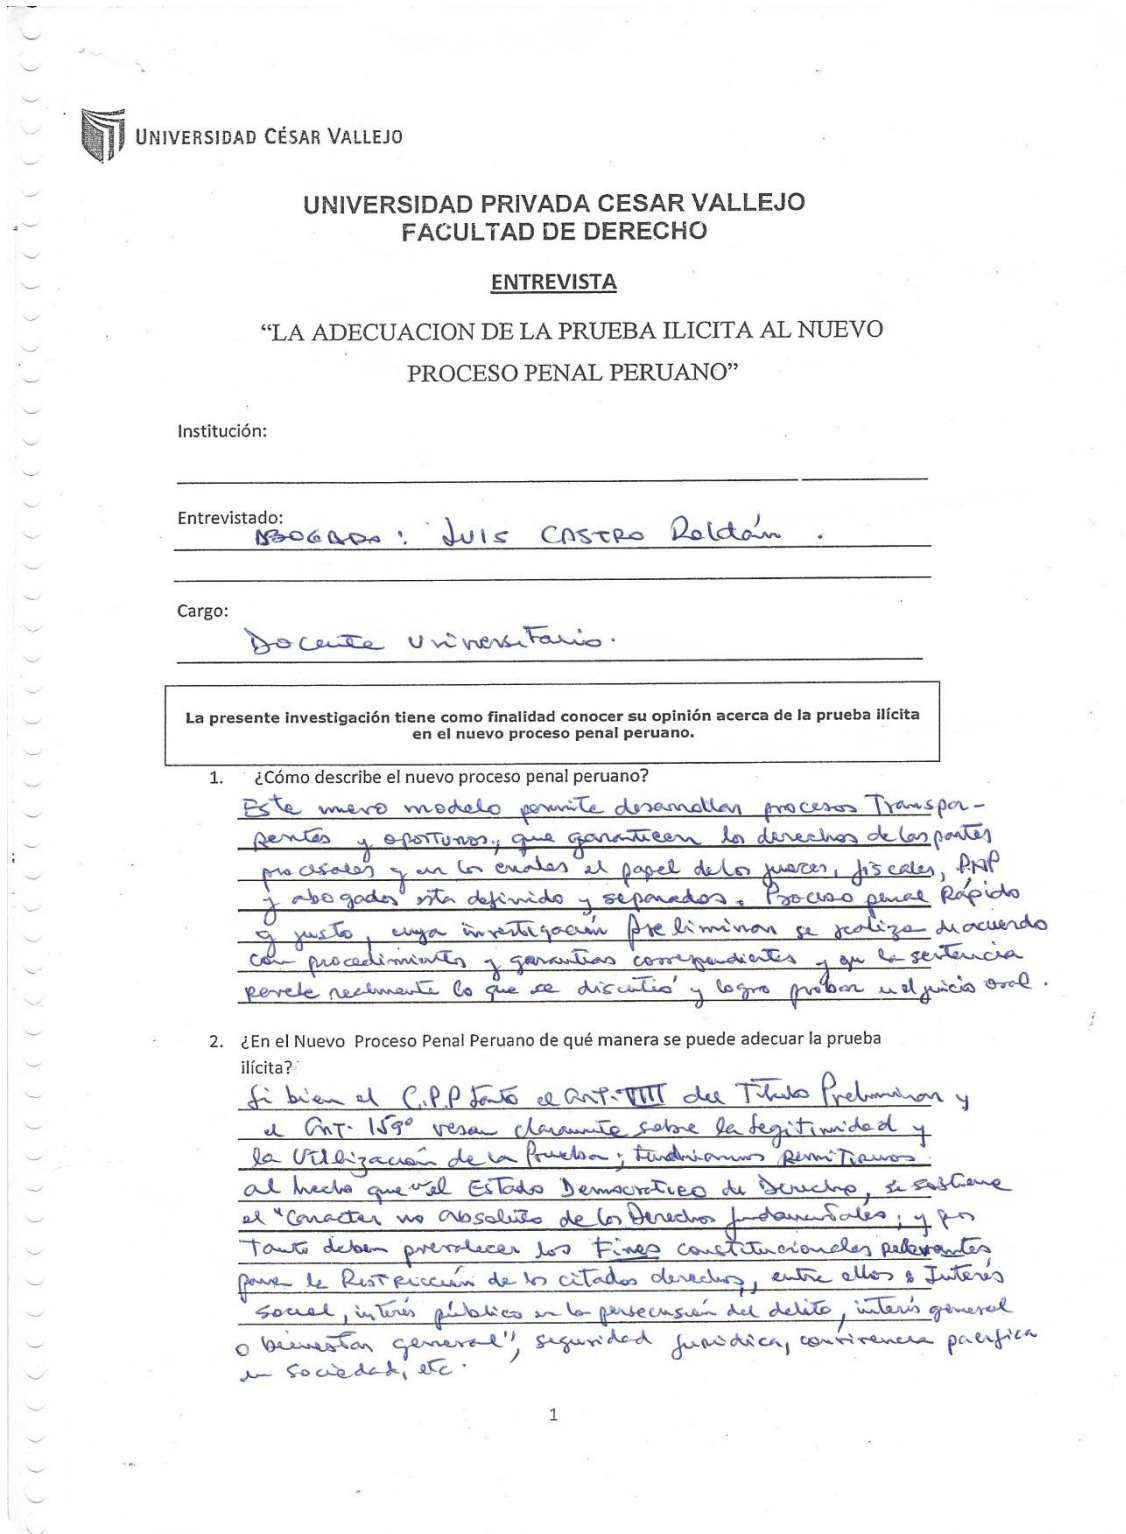 UNIVERSIDAD CÉSAR VALLEJO
UNIVERSIDAD PRIVADA CESAR VALLEJO
FACULTAD DE DERECHO
ENTREVISTA
“LA ADECUACION DE LA PRUEBA ILICITA AL NUEVO
PROCESO PENAL PERUANO”
Institución:
Entrevistado:
ABOGADO: LUIS CASTRO Roldán.
Cargo:
Docente Universitario.
La presente investigación tiene como finalidad conocer su opinión acerca de la prueba ilícita
en el nuevo proceso penal peruano.
1. ¿Cómo describe el nuevo proceso penal peruano?
Este nuevo modelo permite desarrollar procesos Transpa-
rentes y oportunos, que garanticen los derechos de las partes
procesales y en los cuales el papel de los jueces, fiscales, PNP
y abogados esta definido y separados. Proceso penal Rápido
y justo, cuya investigación preliminar se realiza de acuerdo
con procedimientos y garantías correspondientes y que la sentencia
revele realmente lo que se discutió y logro probar en el juicio oral.
2. ¿En el Nuevo Proceso Penal Peruano de qué manera se puede adecuar la prueba
ilícita?
Si bien el C.P.P tanto el art. VIII del Título Preliminar y
el Art. 159° versan claramente sobre la Legitimidad y
la Utilización de la Prueba; tendríamos Remitirnos
al hecho que "el Estado Democratico de Derecho, se sostiene
el "Caracter no absoluto de los Derechos fundamentales; y por
Tanto deben prevalecer los Fines constitucionales relevantes
para la Restricción de los citados derechos, entre ellos: Interés
social, interés público en la persecusión del delito, interés general
o bienestar general", seguridad Jurídica, convivencia pacífica
en Sociedad, etc.
1